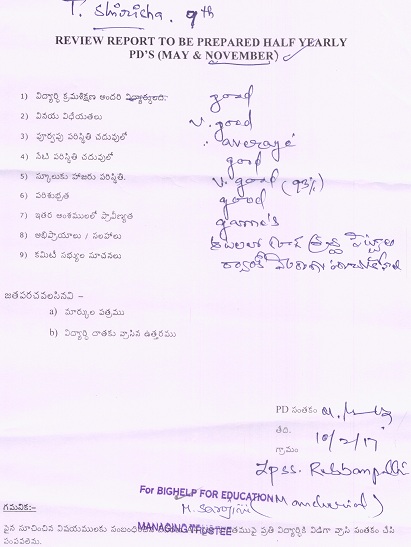 T. Shirisha. 9th
REVIEW REPORT TO BE PREPARED HALF YEARLY
PD'S (MAY & NOVEMBER)
1) విద్యార్థి క్రమశిక్షణ అందరి విద్యార్థులది. good
2) వినయ విధేయతలు v. good
3) పూర్వపు పరిస్థితి చదువులో average
4) నేటి పరిస్థితి చదువులో good
5) స్కూలుకు హాజరు పరిస్థితి. v. good (93%)
6) పరిశుభ్రత good
7) ఇతర అంశములలో ప్రావీణ్యత game's
8) అభిప్రాయాలు / సలహాలు
9) కమిటీ సభ్యుల సూచనలు
జతపరచవలసినవి –
a) మార్కుల పత్రము
b) విద్యార్థి దాతకు వ్రాసిన ఉత్తరము
PD సంతకం
తేది. 10/2/17
గ్రామం
Z.P.S.S. Rebbanpalli
For BIGHELP FOR EDUCATION (Mancherial)
M. Sarojini
MANAGING TRUSTEE
గమనిక:-
పైన సూచించిన విషయములకు ప్రతి విద్యార్థికి విడిగా వ్రాసి సంతకం చేసి
పంపవలెను.